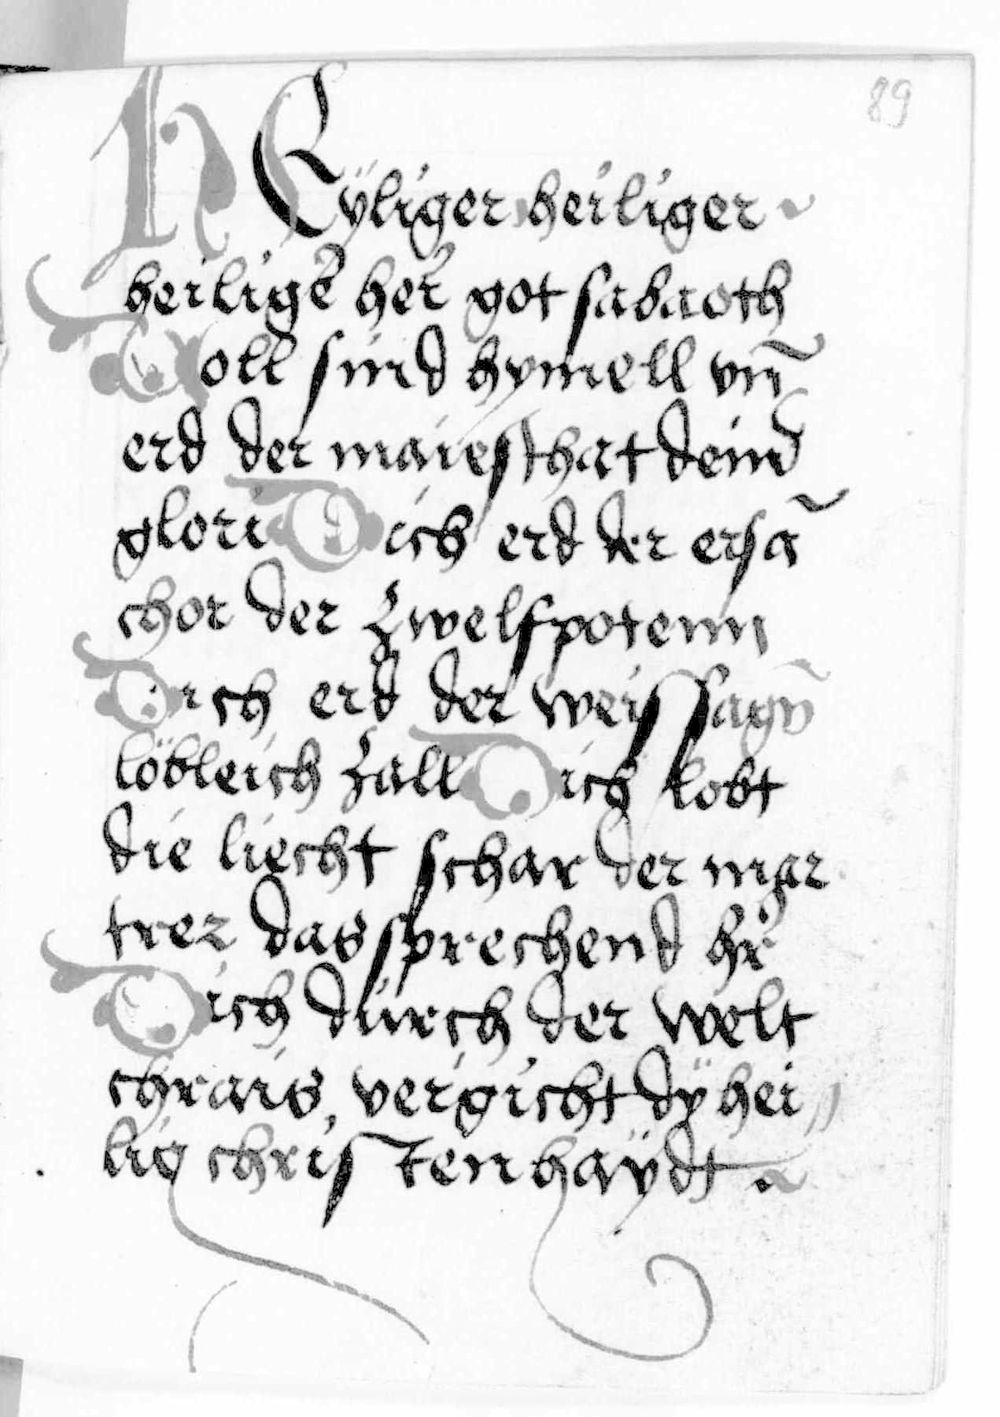 89
HEÿliger heiliger
heiligẽ her̃ got sabaoth
Voll sind hymell vn̄
erd der maiesthat deind
glori Dich erd der ersã
chor der zwelfpotenn
Dich erd der weissagñ
löbleich zall Dich lobt
die liecht schar der mar
trer das sprechend hr̃
Dich durch der welt
chrais vergicht dÿ hei〃
lig christenhaÿdt